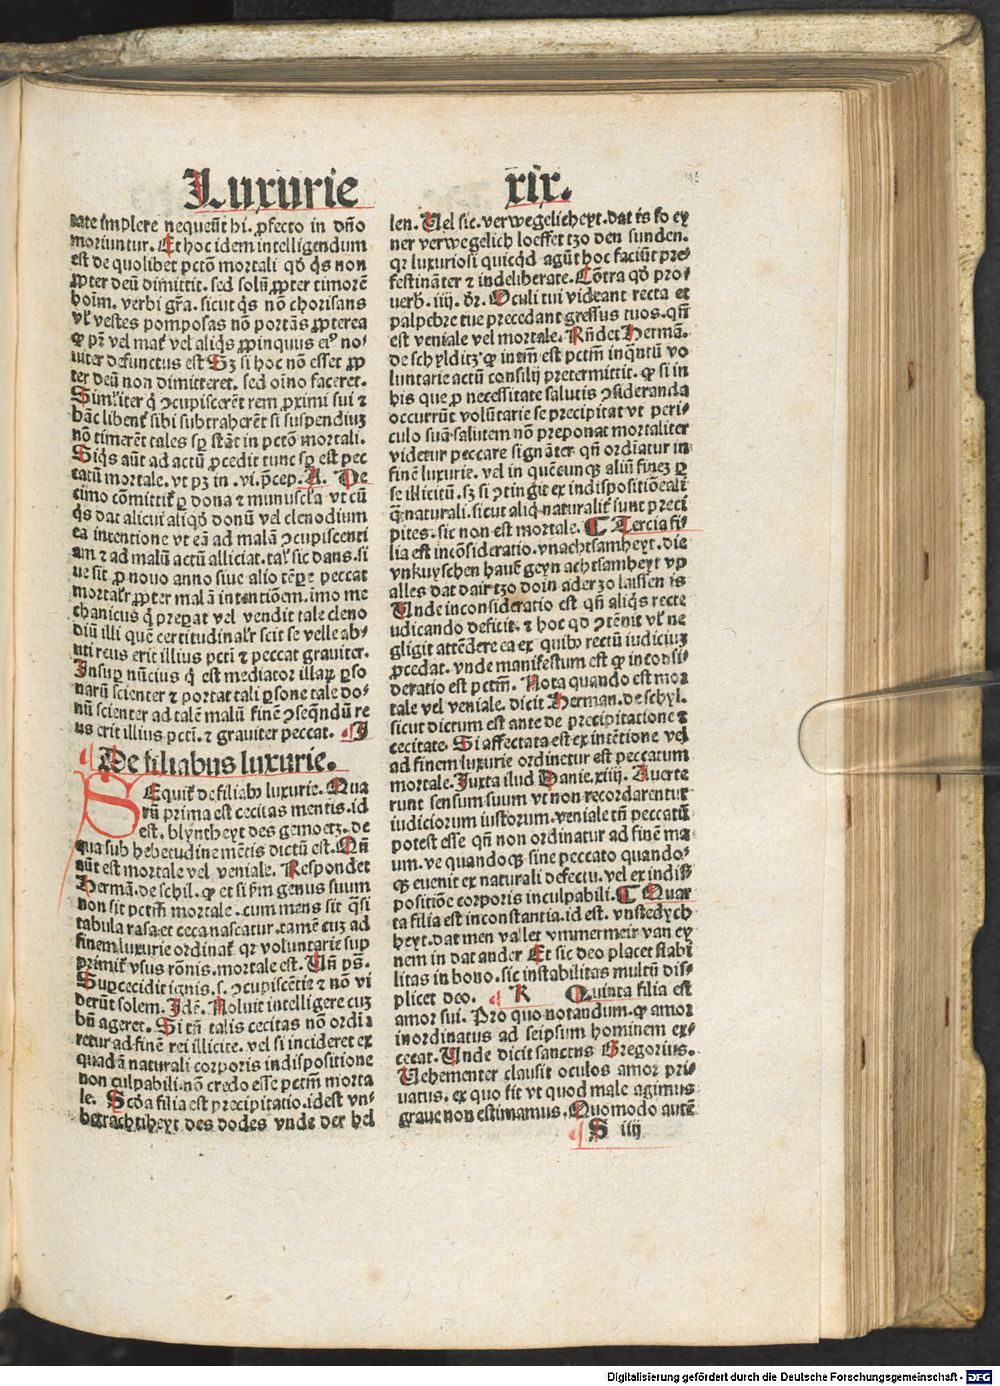 Luxurie xix.
nate implere nequeūt hi. ꝓfecto in dn̄o
moriuntur. Et hoc idem intelligendum
est de quolibet pctō mortali qd̓ q̇s non
ꝓpter deū dimittit. sed solū ꝓpter timorē
hoim̄. verbi gr̄a. sicut q̇s nō chorisans
vl̓ vestes pomposas nō portās ꝓpterea
ꝙ pr̄ vel mat̓ vel aliq̇s ꝓpinquus eiꝰ no⸗
uiter defunctus est Sꝫ si hoc nō esset ꝓp
ter deū non dimitteret. sed oīno faceret.
Simil̓iter q̇ ꝯcupiscerēt rem ꝓximi sui ⁊
hāc libent̓ sibi subtraherēt si suspendiuꝫ
nō timerēt tales sꝑ stāt in pctō mortali.
Siq̇s aūt ad actū ꝓcedit tunc sꝑ est pec
catū mortale. vt pꝫ in .vi. p̄cep. A. De
cimo cōmittit̓ ꝑ dona ⁊ munuscl̓a vt cū
q̇s dat alicui aliqd̓ donū vel clenodium
ea intentione vt eā ad malā ꝯcupiscenti
am ⁊ ad malū actū alliciat. tal̓ sic dans. si
ue sit ꝓ nouo anno siue alio tēꝑe peccat
mortal̓r ꝓpter malā intentiōem. imo me
chanicus q̇ prepat vel vendit tale cleno
diū illi quē certitudinal̓r scit se velle ab⸗
uti reus erit illius pcti ⁊ peccat grauiter.
Insuꝑ nūcius q̇ est mediator illaꝝ ꝑso
narū scienter ⁊ portat tali ꝑsone tale do⸗
nū scienter ad talē malū finē ꝯseq̄ndū re
us erit illius pcti. ⁊ grauiter peccat. I
De filiabus luxurie.
SEquit̓ de filiabꝰ luxurie. Qua
rū prima est cecitas mentis. id
est. blyntheyt des gemoetz. de
qua sub hebetudine mētis dictū est. Qn̄
aūt est mortale vel veniale. Respondet
Hermā. de schil. ꝙ et si p̄m genus suum
non sit pctm̄ mortale. cum mens sit q̇si
tabula rasa et ceca nascatur. tamē cuꝫ ad
finem luxurie ordinat̓ qꝛ voluntarie sup
primit̓ vsus rōnis. mortale est. Un̄ ps̄.
Suꝑcecidit ignis. s. ꝯcupiscētie ⁊ nō vi
derūt solem. Idē. Noluit intelligere cuꝫ
bn̄ ageret. Si tn̄ talis cecitas nō ordi⸗
retur ad finē rei illicite. vel si incideret ex
quadā naturali corporis indispositione
non culpabili. nō credo esse pctm̄ morta
le. Scd̓a filia est precipitatio. id est vn⸗
betrachtiheyt des dodes vnde der hel
len. Uel sic. verwegelicheyt. dat is so ey
ner verwegelich loeffet tzo den sunden.
qꝛ luxuriosi quicq̇d agūt hoc faciūt pre⸗
festināter ⁊ indeliberate. Cōtra qd̓ pro⸗
uerb̓. iiij. dr̄. Oculi tui videant recta et
palpebre tue precedant gressus tuos. qn̄
est veniale vel mortale. Rn̄det Hermā.
de schylditz ꝙ intm̄ est pctm̄ inq̄ntū vo
luntarie actū consilij pretermittit. ꝙ si in
his que ꝓ necessitate salutis ꝯsideranda
occurrūt volūtarie se precipitat vt peri⸗
culo suā salutem nō preponat mortaliter
videtur peccare signāter qn̄ ordīatur in
finē luxurie. vel in quēcunqꝫ aliū finez ꝑ
se illicitū. sꝫ si ꝯtingit ex indispositiōe ali
q̄ naturali. sicut aliq̇ naturalit̓ sunt preci
pites. sic non est mortale. Tercia fi⸗
lia est incōsideratio. vnachtsamheyt. die
vnkuyschen hauē geyn achtsamheyt vp
alles dat dair tzo doin ader zo laissen is
Unde inconsideratio est qn̄ aliq̇s recte
iudicando deficit. ⁊ hoc qd̓ ꝯtēnit vl̓ ne
gligit attēdere ea ex quibꝰ rectū iudiciuꝫ
ꝓcedat. vnde manifestum est ꝙ inconsi⸗
deratio est pctm̄. Nota quando est mor
tale vel veniale. dicit Herman. de schyl.
sicut dictum est ante de precipitatione ⁊
cecitate. Si affectata est ex intētione vel
ad finem luxurie ordinetur est peccatum
mortale. Juxta illud Danie. xiij. Auerte
runt sensum suum vt non recordarentur
iudiciorum iustorum. veniale tn̄ peccatū
potest esse qn̄ non ordinatur ad finē ma⸗
um. ve quandoqꝫ sine peccato quando⸗
qꝫ euenit ex naturali defectu. vel ex indis⸗
positiōe corporis inculpabili. Quar
ta filia est inconstantia. id est. vnstedych
heyt. dat men vallet vmmermeir van ey
nem in dat ander Et sic deo placet stabi
litas in bono. sic instabilitas multū dis⸗
plicet deo. K Quinta filia est
amor sui. Pro quo notandum. ꝙ amor
inordinatus ad seipsum hominem exc⸗
cecat. Unde dicit sanctus Gregorius.
Uehementer clausit oculos amor pri⸗
uatus. ex quo fit vt quod male agimus
graue non estimamus. Quomodo autē
S iiij
Digitalisierung gefördert durch die Deutsche Forschungsgemeinschaft - DFG